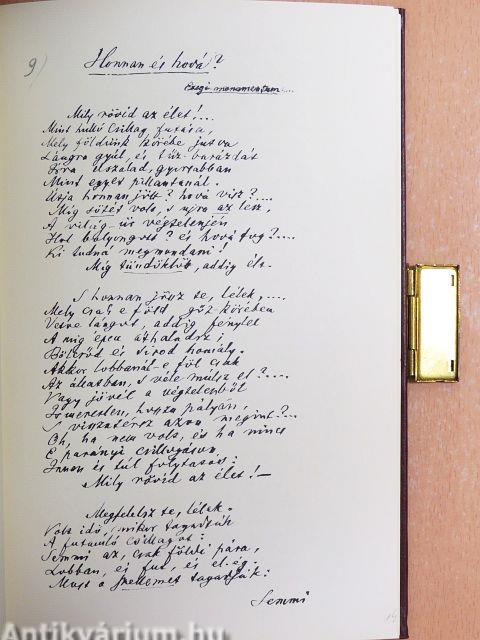 9)
Honnan és hová?
Exegi monumentum...
Mily rövid az élet!....
Mint hulló csillag futása,
Mely földünk körébe jutva
Lángra gyúl, és tüz-barázdát
Irva elszalad, gyorsabban
Mint egyet pillantanál.
Útja honnan jött? hová visz?....
Mig sötét volt, s ujra az lesz,
A világ-ür végtelenjén
Hol bolyongott? és hová fog?....
Ki tudná megmondani!
Mig tündöklött, addig élt.
S honnan jösz te, lélek,....
Mely csak e föld gőz-körében
Vetve lángot, addig fénylet
A mig épen áthaladsz;
Bölcsőd és sirod homály.
Akkor lobbanál-e föl csak
Az állatban, s véle múlsz el?....
Vagy jövél a végtelenből
Ismeretlen, hosszu pályán,
S visszatérsz azon megint?...
Oh, ha nem volt, és ha nincs
E parányi csillogáson
Innen és túl folytatás:
Mily rövid az élet!—
Megfelelsz te, lélek.
Volt idő, mikor tagadták
A futamló csillagot:
Semmi az, csak földi pára,
Lobban, és fut, és elég.
Most a szellemet tagadják:
Semmi
14
Antikvárium.hu